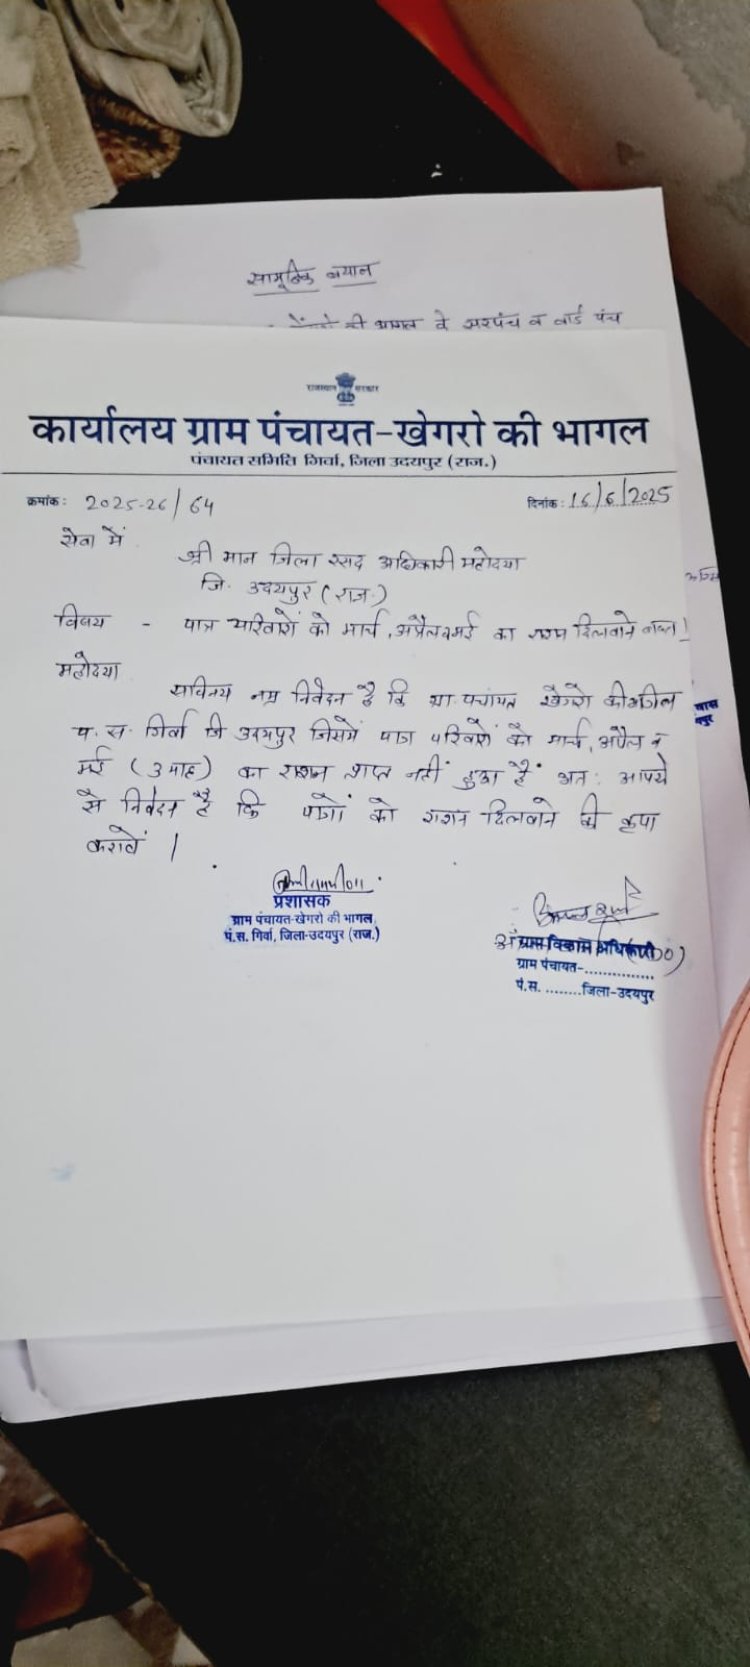 सामूहिक बयान
की भागल के सरपंच व वार्ड पंच
राजस्थान सरकार
कार्यालय ग्राम पंचायत-खेगरो की भागल
पंचायत समिति गिर्वा, जिला उदयपुर (राज.)
क्रमांक: 2025-26/64 दिनांक: 16/6/2025
सेवा में
श्री मान जिला रसद अधिकारी महोदया
जि. उदयपुर (राज.)
विषय - पात्र परिवारों को मार्च, अप्रैल व मई का राशन दिलवाने बाबत।
महोदया
सविनय नम्र निवेदन है कि ग्रा. पचांयत खेगरो की भागल
प. स. गिर्वा जि उदयपुर जिसमें पात्र परिवारों को मार्च, अप्रैल व
मई (3 माह) का राशन प्राप्त नहीं हुआ है अत: आपसे
से निवेदन है कि पात्रों को राशन दिलवाने की कृपा
करावें।
प्रशासक
ग्राम पंचायत-खेगरो की भागल
पं.स. गिर्वा, जिला-उदयपुर (राज.)
ग्राम विकास अधिकारी
ग्राम पंचायत-...............
पं.स. ........जिला-उदयपुर